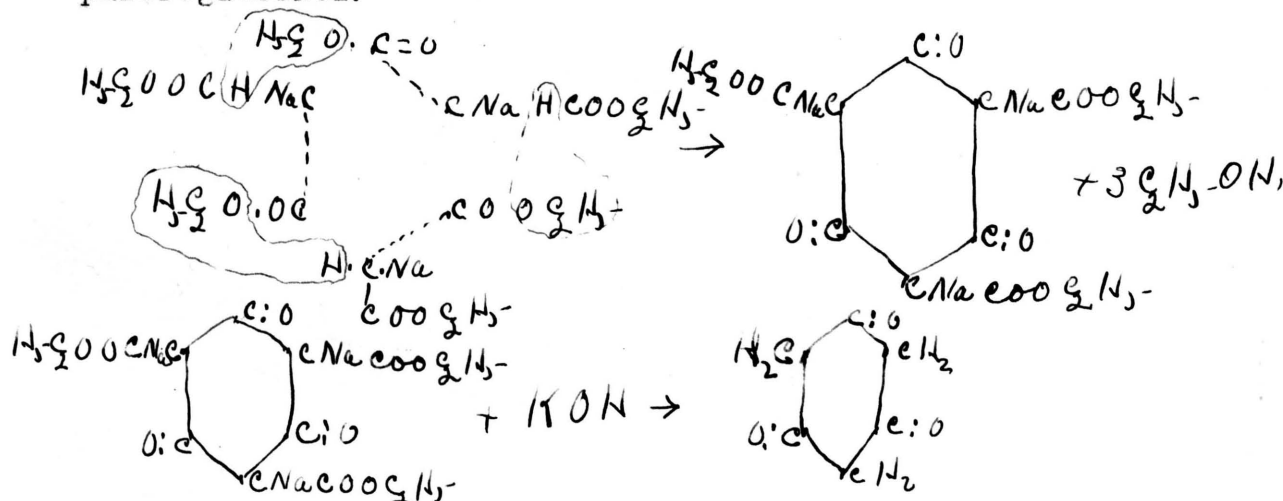 H5C2O. C=O
H5C2OOC H NaC
CNa H COOC2H5
H5C2O.OC
COOC2H5
H.C.Na
COOC2H5
→
C:O
H5C2OOCNaC
CNaCOOC2H5
O:C
C:O
CNaCOOC2H5
+ 3C2H5OH,
C:O
H5C2OOCNaC
CNaCOOC2H5
O:C
C:O
CNaCOOC2H5
+ KOH →
C:O
H2C
CH2
O:C
C:O
CH2